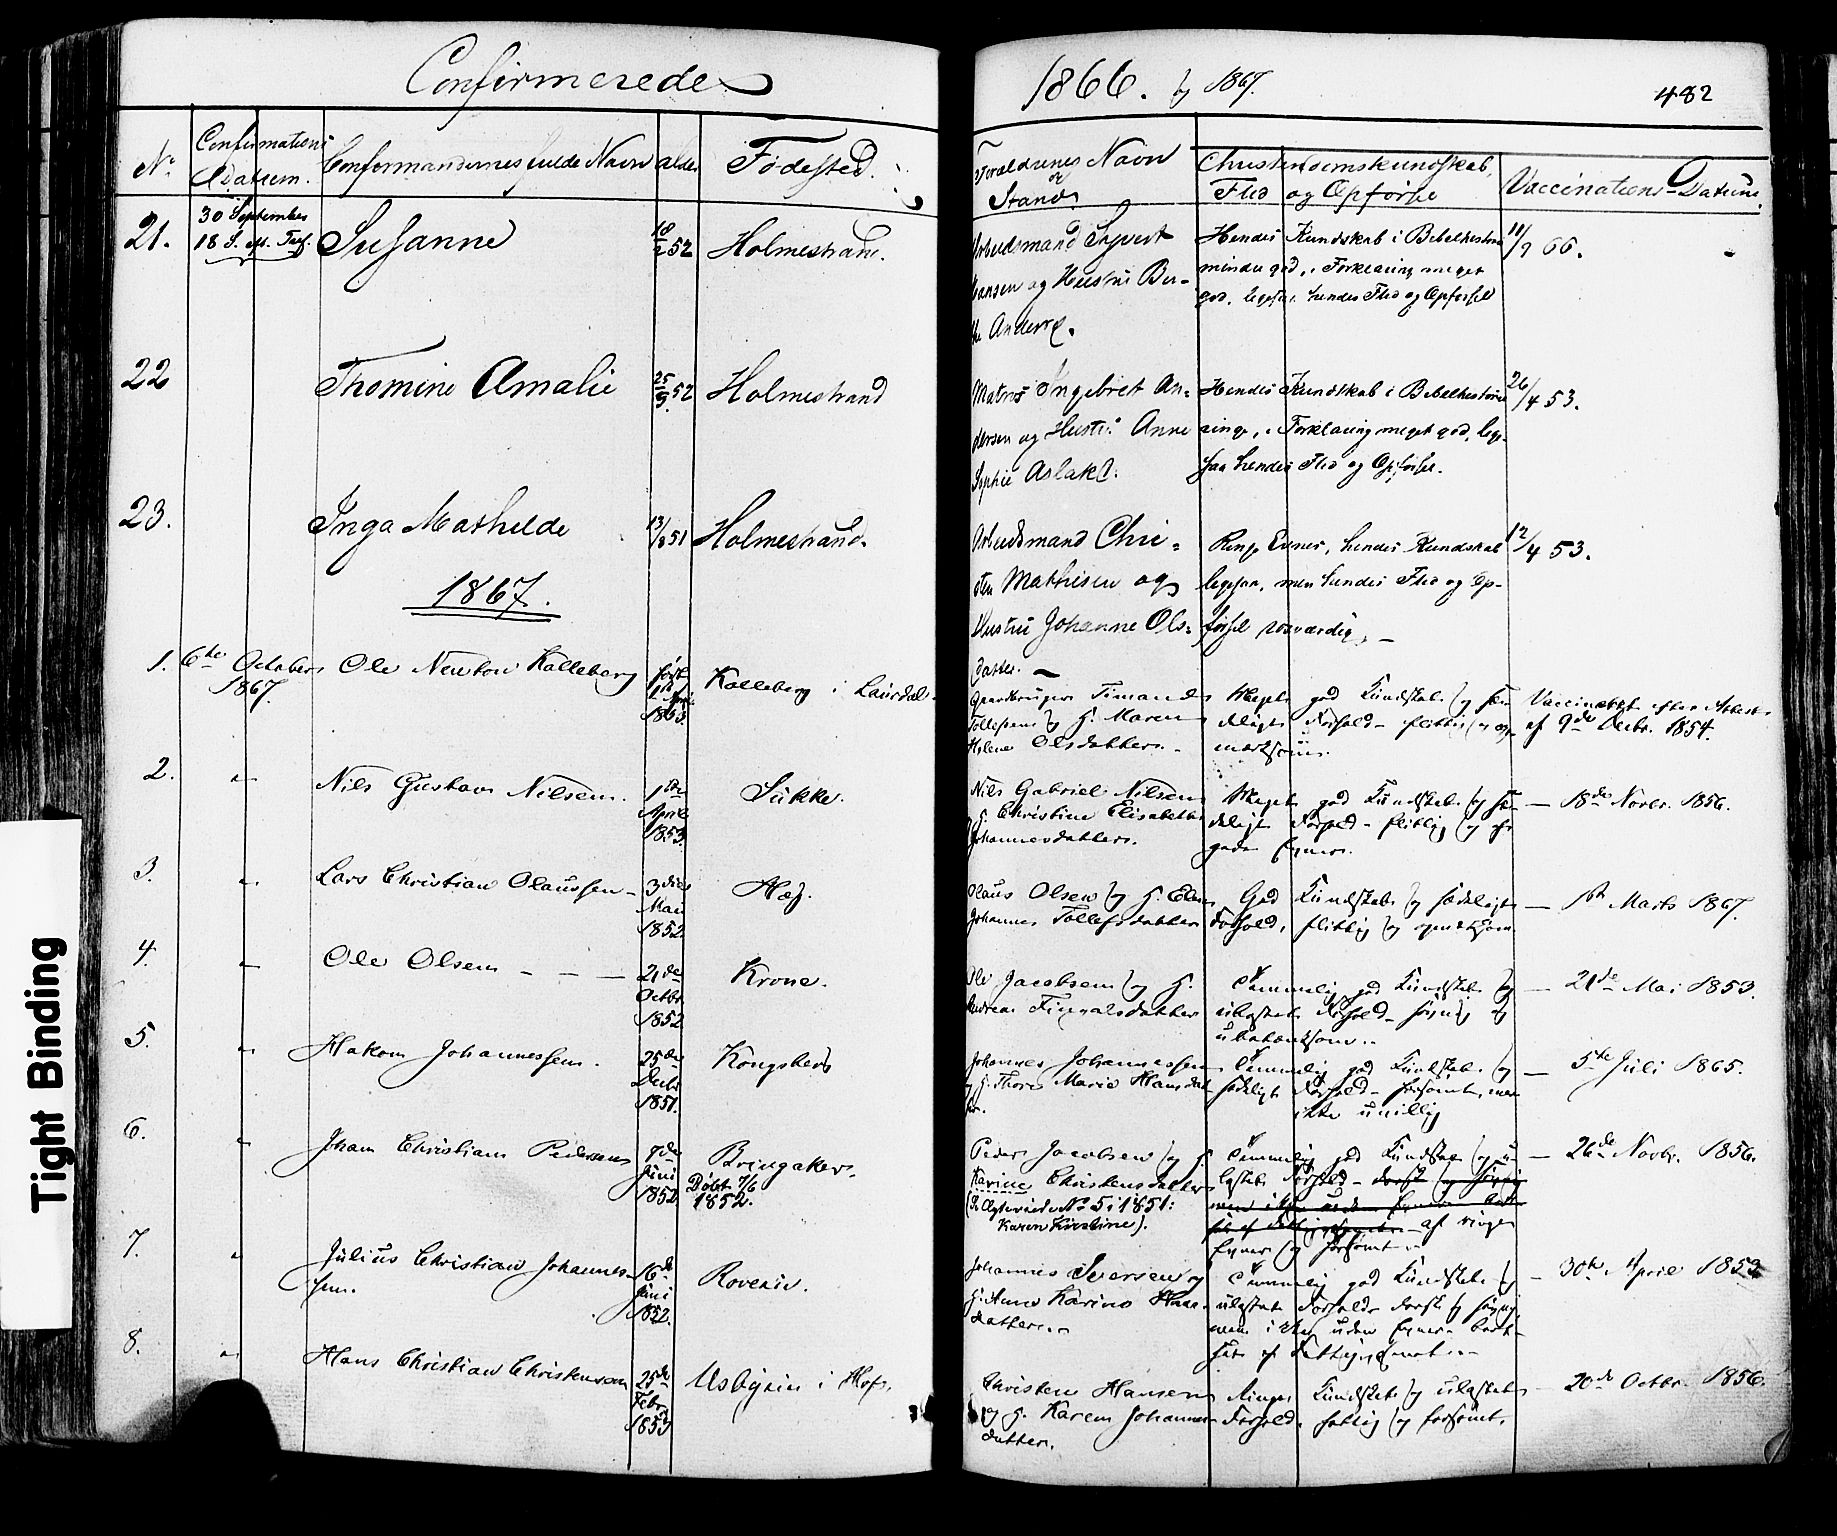 Confirmerede
1866. og 1867.
482
No
Confirmations Datum.
Confirmandernes fulde Navn
alder
Fødested.
Forældrenes Navn og Stand
Christendomskundskab, Flid og Opførsel
Vaccinations-Datum.
21.
30 September
18 S. e. Tref.
Susanne
52
Holmestrand.
Arbeidsmand Syvert
Hansen og Hustru Ber-
the Andersd.
Hendes Kundskab i Bibelhistorie
mindre god, i Forklaring meget
god, ligesaa hendes Flid og Opførsel
11/9 66.
22
Thomine Amalie
25/9 52
Holmestrand
Matros Ingebret An-
dersen og Hustru Anne
Sophie Aslaksd.
Hendes Kundskab i Bibelhistorie
ringe, i Forklaring meget god, lige-
saa hendes Flid og Opførsel.
26/4 53.
23.
Inga Mathilde
13/8 51
Holmestrand.
Arbeidsmand Chri-
sten Mathisen og
Hustru Johanne Ols-
datter.
Ringe Evner, hendes Kundskab
ligesaa, men hendes Flid og Op-
førsel rosværdig.
12/4 53.
1867.
1.
6te October
1867.
Ole Newton Kalleberg
født
1853.
Kalleberg i Laurdal.
Gaardbruger Timand
Tollefsen og H. Maren
Helene Olsdatter.
Meget god Kundskab og sæ-
deligt Forhold - flittig og op-
mærksom.
Vaccineret efter Attest
af 9de Decbr. 1854.
2.
"
Nils Gustav Nilsen.
1ste
April
1853.
Sukke.
Nils Gabriel Nilsen
og H. Christine Elisabeth
Johannesdatter.
Meget god Kundskab og sæ-
deligt Forhold - flittig og af
gode Evner.
— 18de Novbr. 1856.
3.
"
Lars Christian Olaussen -
3die
Mai
1852
Haj.
Olaus Olsen og H. Elen
Johanne Tollefsdatter
God Kundskab og sædeligt
Forhold, flittig og opmærksom
— 1ste Marts 1867.
4.
"
Ole Olsen - - -
21de
Octbr
1852
Krone.
Ole Jacobsen og H.
Andrea Fingalsdatter
Temmelig god Kundskab og
ulastet Forhold -
ubetænksom.
— 21de Mai 1853.
5.
"
Hakon Johannessen.
25de
Decbr
1851.
Kongsberg
Johannes Johannessen
og H. Thore Marie Hansdat-
ter.
Temmelig god Kundskab og
sædeligt Forhold - forsømt, men
ikke uvillig
— 5te Juli 1865.
6.
"
Johan Christian Pedersen
7de
Juni
1852
Bringaker.
Døbt 7/6
1852.
Peder Jacobsen og H.
Karine Christensdatter
No 5 i 1851:
Karen Kirstine).
Temmelig god Kundskab og u-
lastet Forhold -
af ringe
Evner og forsømt.
— 26de Novbr. 1856.
7.
"
Julius Christian Johannes-
sen.
16de
Juni
1852.
Roverin.
Johannes Iversen og
H. Anne Karine Hans-
datter.
Temmelig god Kundskab og
ulastet Forhold,
men ikke uden Evner -
— 30te April 1853
8.
"
Hans Christian Christensen
25de
Febr
1853
Usbyein i Hof.
Christen Hansen
og H. Karen Johannes-
datter.
Ringe Kundskab og ulastet
Forhold. fattig og forsømt.
— 20de Octbr. 1856.
Tight Binding